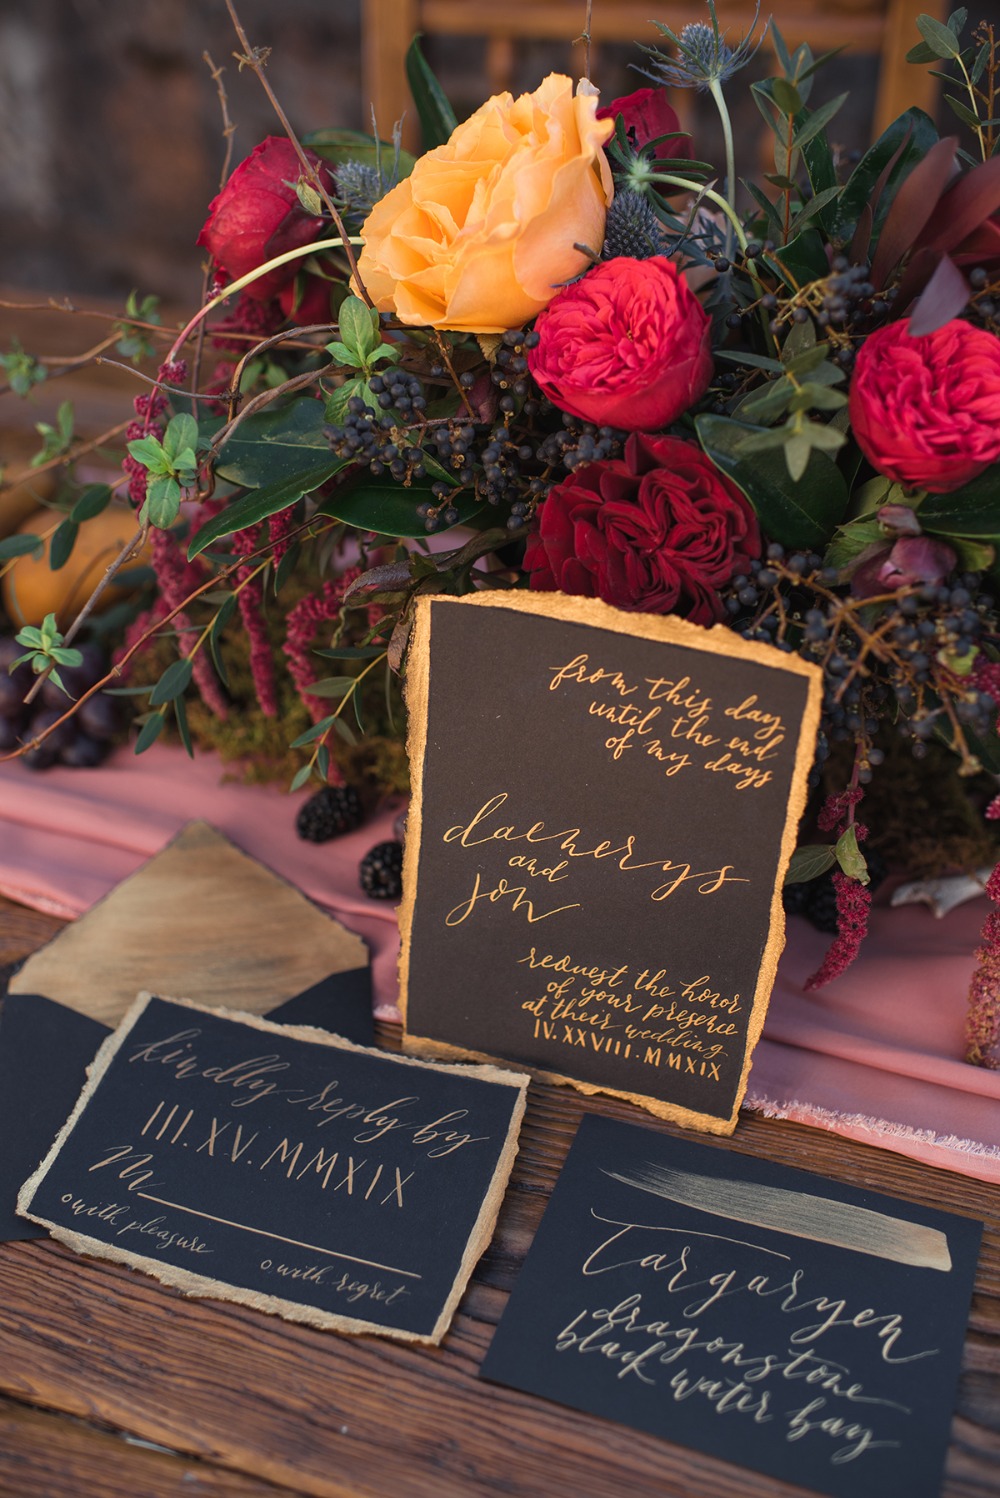 from this day
until the end
of my days
daenerys
and
jon
request the honor
of your presence
at their wedding
IV.XXVIII.MMXIX
kindly reply by
III.XV.MMXIX
M
with pleasure
with regret
Targaryen
dragonstone
black water bay